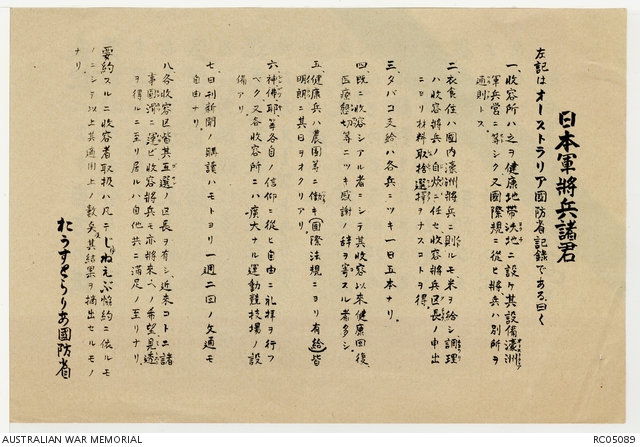 日本軍將兵諸君
左記はオーストラリア國防省記錄である、曰く
一、收容所ハ之ヲ健康地帶沃地ニ設ケ其設備濠洲
軍兵營ニ等シク又國際規ニ從ヒ將兵ハ別所ヲ
通則トス、
二、衣食住ハ國内濠洲將兵ニ則ルモ米ヲ給シ調理
ハ收容將兵ノ自炊ニ任セ、收容將兵區長ノ申出
ニヨリ材料取捨選擇ヲナスコトヲ得。
三、タバコ支給ハ各兵ニツキ一日五本ナリ。
四、既ニ收容シアル者ニシテ其收容以來健康回復、
醫療懇切等ニツキ感謝ノ辞ヲ寄スル者多シ。
五、健康兵ハ農園等ニ働キ(國際法規ニヨリ有給)皆
明朗ニ其日ヲオクリアリ。
六、神、佛、耶、等各自ノ信仰ニ從ヒ自由ニ礼拝ヲ行フ
ベク、又各收容所ニハ廣大ナル運動競技場ノ設
備アリ。
七、日刊新聞ノ購讀ハモトヨリ一週二回ノ文通モ
自由ナリ。
八、各收容区皆其互選ノ区長ヲ有シ、近來コトニ諸
事圓滑ニ運ビ收容將兵モ亦將來ヘノ希望、見透
ヲ得ルニ至リ居ルハ自他共ニ滿足ノ至リナリ。
要約スルニ收容者取扱ハ凡テじゅねえぶ協約ニ依ルモ
ノニシテ以上其適用上ノ數矣、其結果ヲ摘出セルモノ
ナリ。
おうすとらりあ國防省
AUSTRALIAN WAR MEMORIAL
RC05089